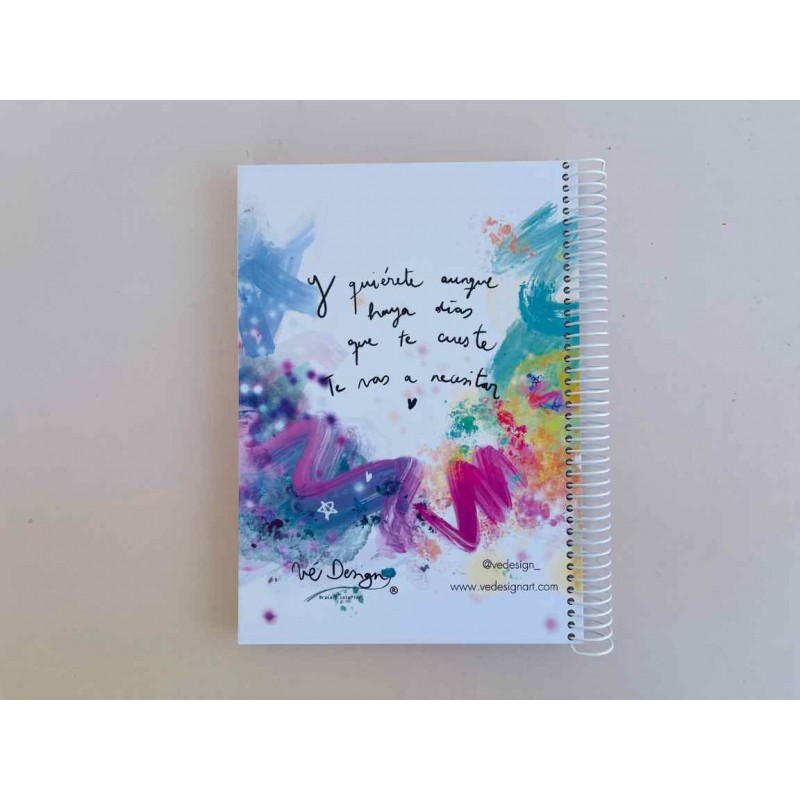 Y quiérete aunque
haya días
que te cueste
Te vas a necesitar
@vedesign_
Vé Design
®
www.vedesignart.com